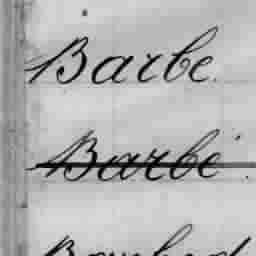 Barbe
Barbé